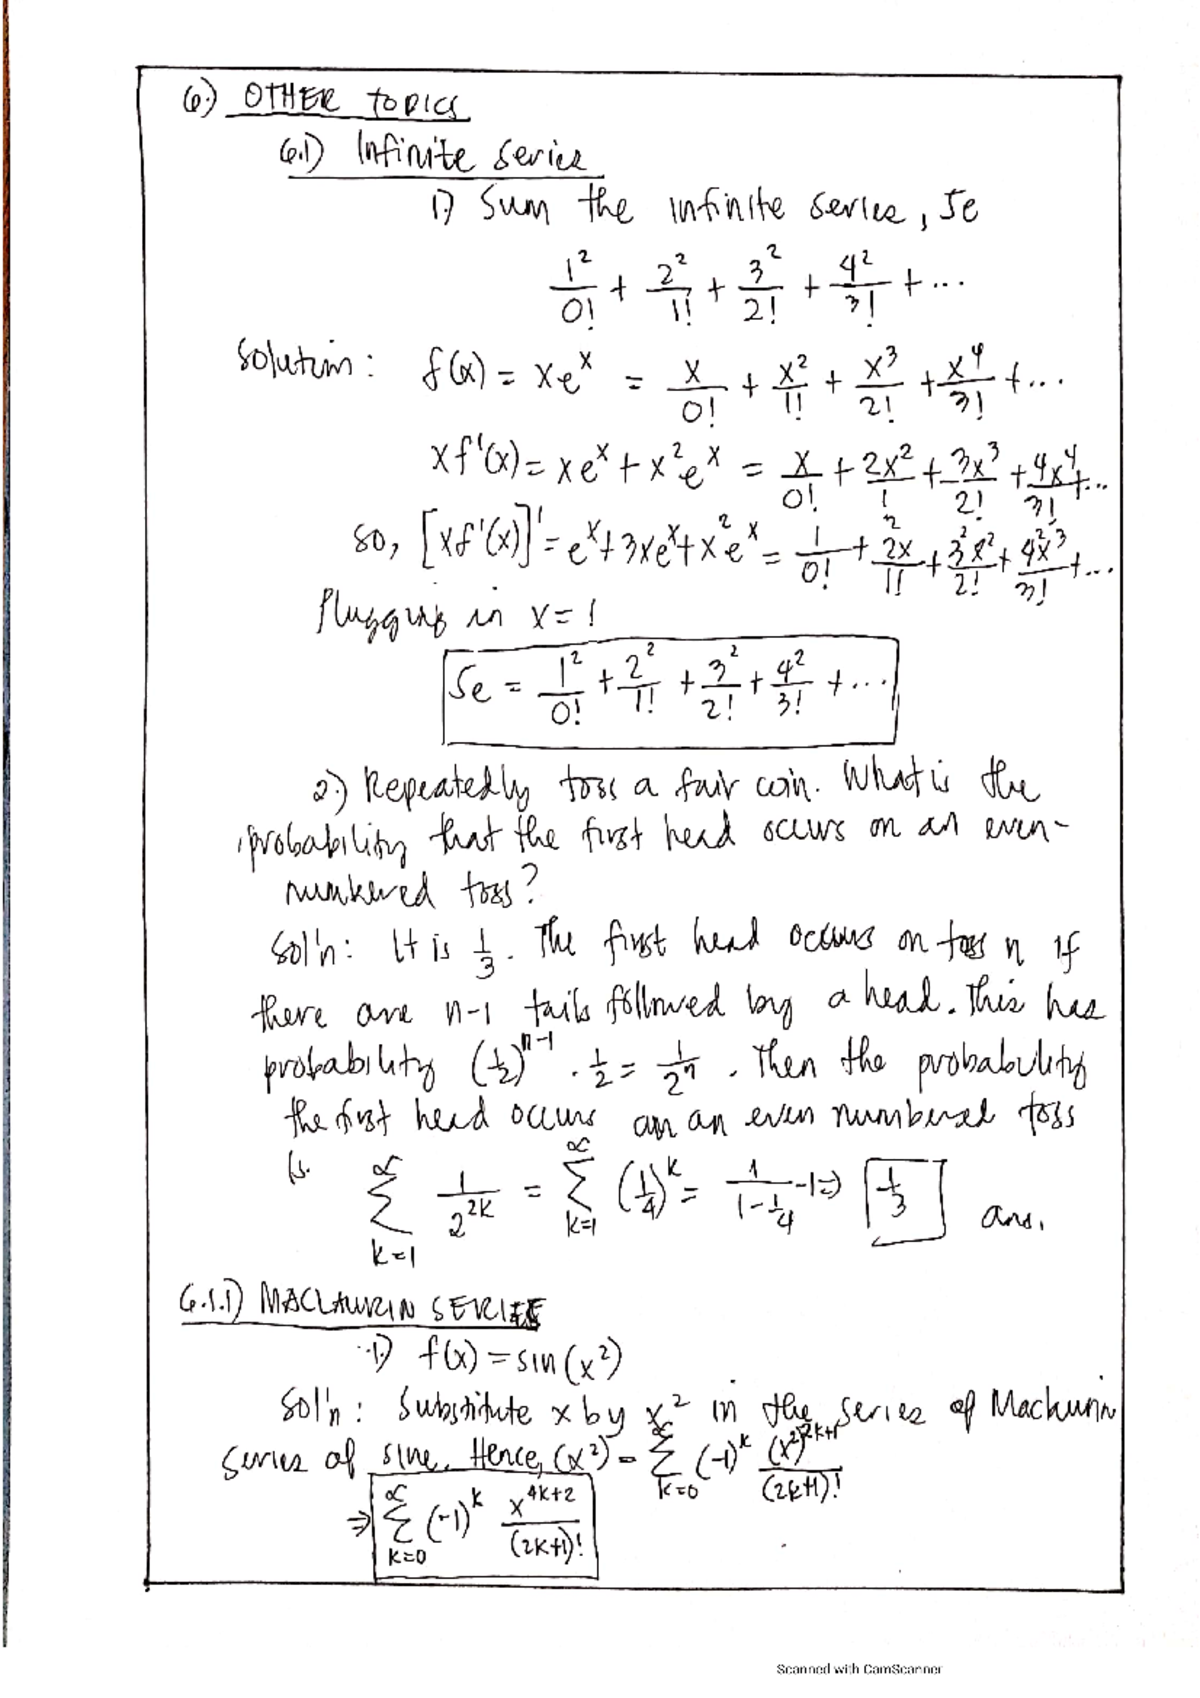 6.) OTHER TOPICS
6.1) Infinite series
1.) Sum the infinite series, 5e
1²/0! + 2²/1! + 3²/2! + 4²/3! + ...
Solution: f(x) = xe^x = x/0! + x²/1! + x³/2! + x⁴/3! + ...
xf'(x) = xe^x + x²e^x = x/0! + 2x²/1 + 3x³/2! + 4x⁴/3! + ...
so, [xf'(x)]' = e^x + 3xe^x + x²e^x = 1/0! + 2²x/1! + 3²x²/2! + 4²x³/3! + ...
Plugging in x = 1
5e = 1²/0! + 2²/1! + 3²/2! + 4²/3! + ...
2.) Repeatedly toss a fair coin. What is the
probability that the first head occurs on an even-
numbered toss?
Sol'n: It is 1/3. The first head occurs on toss n if
there are n-1 tails followed by a head. This has
probability (1/2)^(n-1) · 1/2 = 1/2^n. Then the probability
the first head occurs on an even numbered toss
is. ∑_{k=1}^{∞} 1/2^(2k) = ∑_{k=1}^{∞} (1/4)^k = 1/(1-1/4) -1 => 1/3 ans.
6.1.1) MACLAURIN SERIES
1.) f(x) = sin(x²)
Sol'n: Substitute x by x² in the series of Maclaurin
series of sine. Hence, (x²) = ∑_{k=0}^{∞} (-1)^k (x²)^(2k+1)/(2k+1)!
⇒ ∑_{k=0}^{∞} (-1)^k x^(4k+2)/(2k+1)!
Scanned with CamScanner